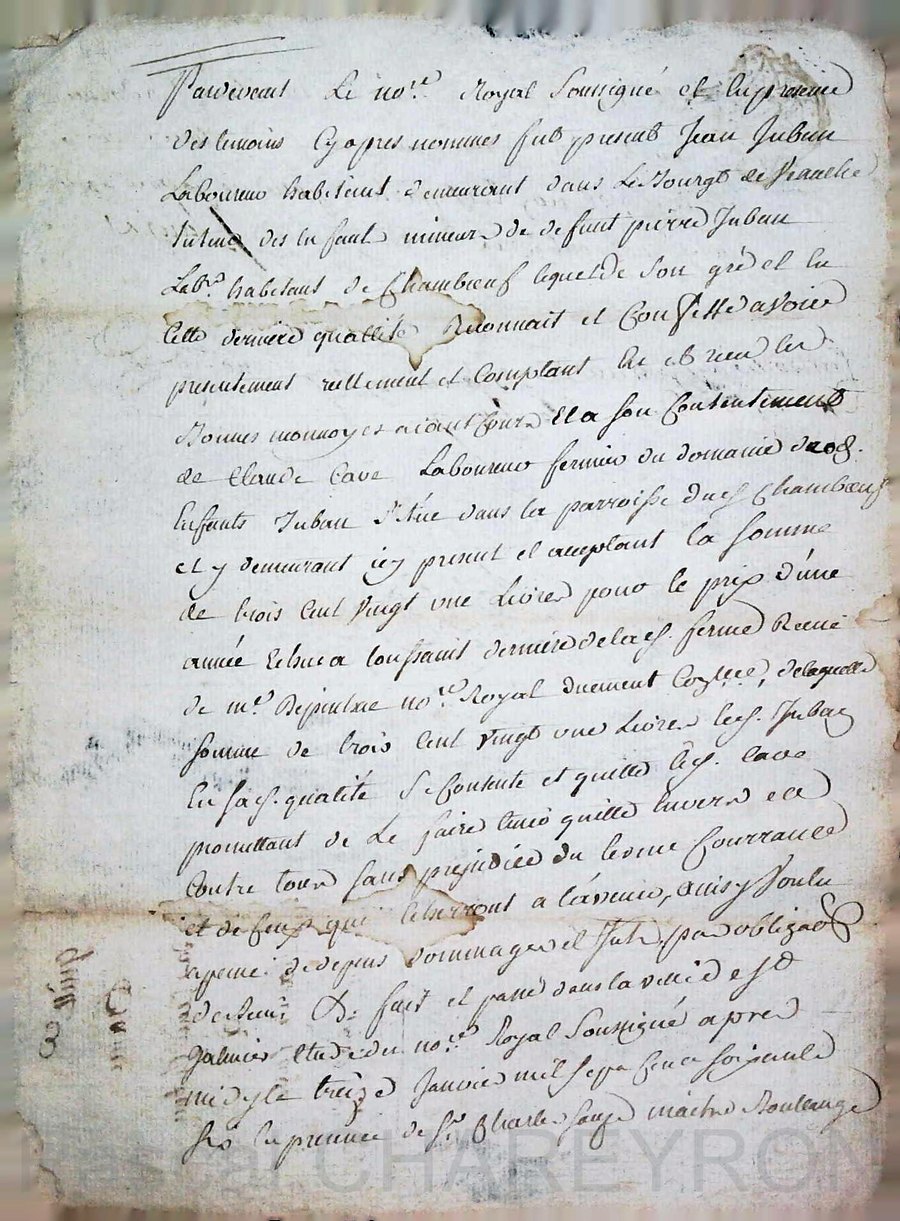 Pardevant Le no.re Royal Soussigné et En presence
des temoins Cy apres nommes fut present Jean Juban
Laboureur habitant demeurant dans Le Bourgt de Veauche
tuteur des En fants mineurs de defunt pierre Juban
Lab.r habitant de Chambœuf lequel de son gré et En
Cette derniere quallité Reconnait et Confesse avoir
presentement rellement et Comptant he et reçu En
Bonnes monnoyes aiant Cours Et a son Consentement
de Claude Cave Laboureur fermier du domaine des d.
Enfants Juban Situé dans la parroisse dud. Chambœuf
et y demeurant icy present et acceptant la somme
de trois Cent Vingt une Livres pour le prix d'une
année Echue a toussaint derniere de lad. ferme Receu
de m.e no.re Royal duement, de laquelle
somme de trois Cent Vingt une Livres led. Juban
En sad. qualité Se Contente et quitte led. Cave
promettant de Le faire tenir quitte Envers et
Contre tous sans prejudice du terme Courrant
et de Ceux qui Echerront a l'avenir, ainsy Voulu
a peine de depens dommages et Int., par obligaon
fait et passé dans la ville de St
Galmier Etude du no.re Royal Soussigné apres
midy le treize Janvier mil sept Cent soixante
six En presence de Sr. Charles maitre Boulanger
Pascal CHAREYRON